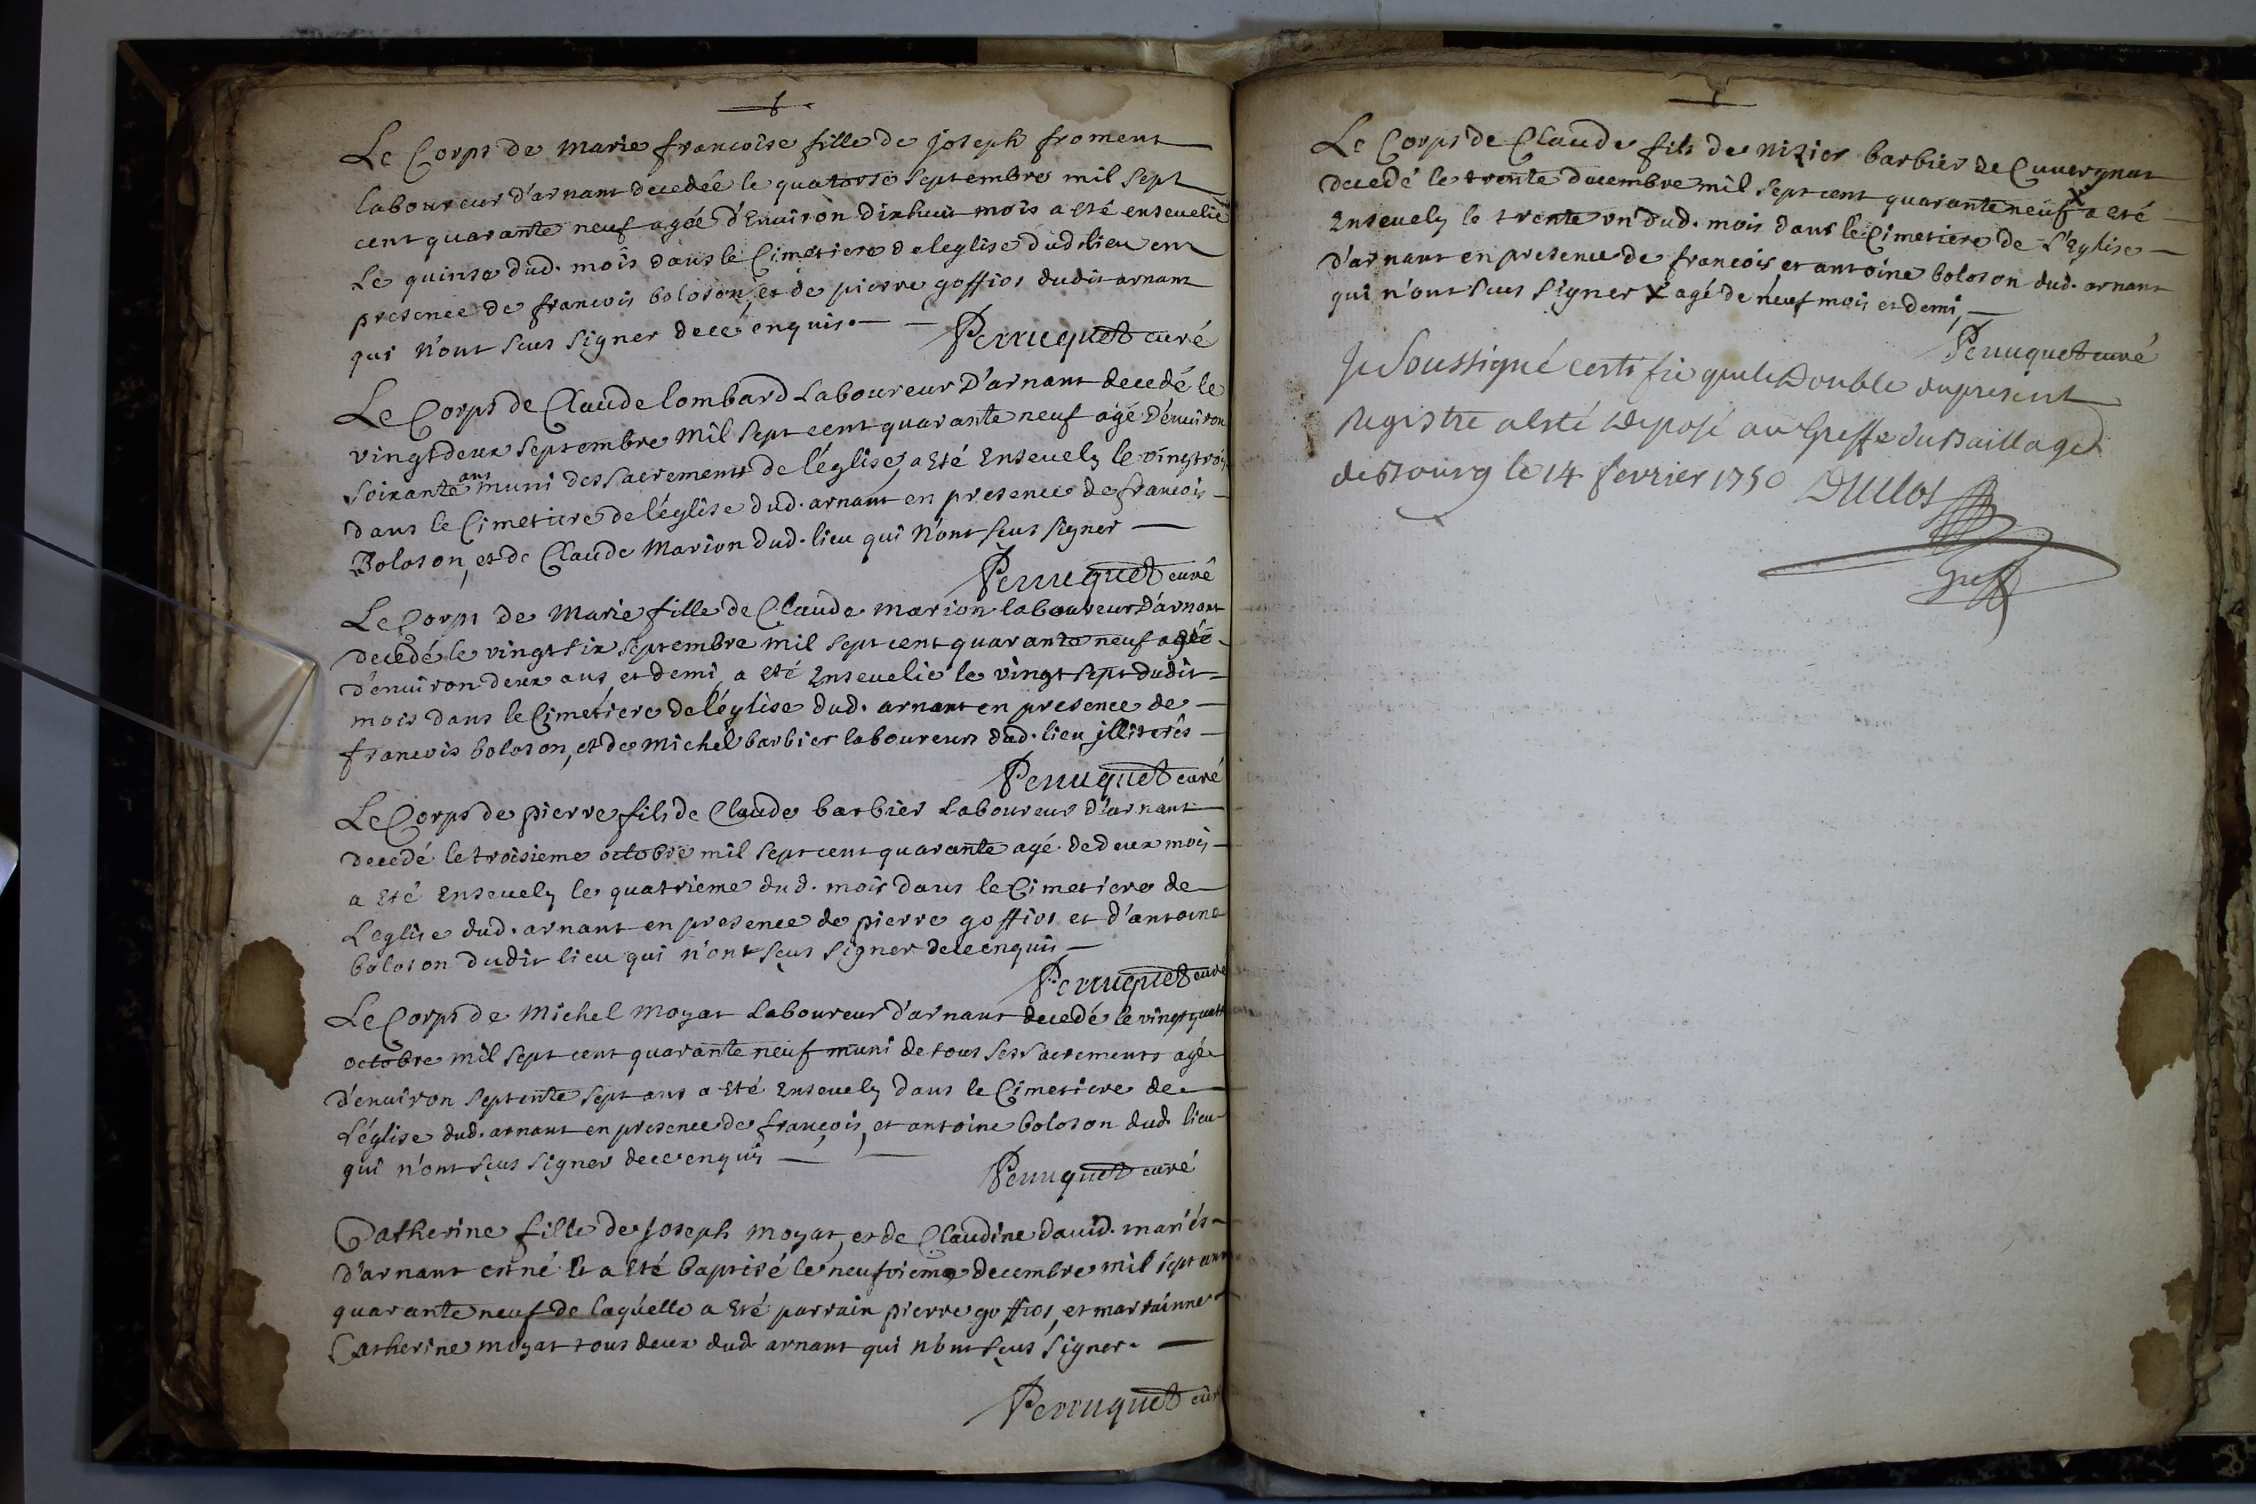 Le Corps de Marie francoise fille de joseph froment
laboureur d'arnant decedée le quatorse septembre mil sept
cent quarante neuf agée d'Enuiron dixhuit mois a eté enseuelie
Le quinse dud. mois dans le Cimetiere de leglise dud. lieu en
presence de francois boloson, et de pierre goffios dudit arnant
qui n'ont scus signer de ce enquis.
Perruquet curé
Le Corps de Claude lombard Laboureur D'arnant decedé le
vingt deux septembre Mil sept cent quarante neuf agé D'enuiron
soixante ans muni des sacrements de l'église, a eté Enseuely le vingt trois
dans le Cimetiere de l'église dud. arnant en presence de francois
Boloson, et de Claude Marion dud. lieu qui N'ont scus signer
Perruquet curé
Le Corps de Marie fille de Claude marion laboureur D'arnant
decedé le vingt six septembre mil sept cent quarante neuf agée
d'enuiron deux ans et demi, a eté Enseuelie le vingt sept dudit
mois dans le Cimetiere de l'église dud. arnant en presence de
francois boloson, et de Michel barbier laboureurs dud. lieu jllitérés
Perruquet curé
Le Corps de pierre fils de Claude barbier Laboureur d'arnant
decedé le troisieme octobre mil sept cent quarante agé de deux mois
a eté Enseuely le quatrieme dud. mois dans le Cimetiere de
L'eglise dud. arnant en presence de pierre goffios et d'antoine
boloson dudit lieu qui n'ont scus signer de ce enquis
Perruquet curé
Le Corps de Michel Moyat Laboureur d'arnant decedé le vingt quatr
octobre mil sept cent quarante neuf muni de tous ses sacrements agé
d'enuiron septente sept ans a eté Enseuely dans le Cimetiere de
L'église dud. arnant en presence de francois, et antoine boloson dud. lieu
qui n'ont scus signer de ce enquis
Perruquet curé
Catherine fille de joseph moyat, et de Claudine dauid mariés
d'arnant est né Et a eté baptisé le neufvieme decembre mil sept cent
quarante neuf de laquelle a eté parrain pierre goffios, et marrainne
Catherine moyat tous deux dud. arnant qui n'ont scus signer.
Perruquet curé
Le Corps de Claude fils de nizier barbier de Cuuergnat
decedé le trente decembre mil sept cent quarante neuf x a eté
Enseuely le trente un dud. mois dans le Cimetiere de L'Eglise
d'arnant en presence de francois et antoine boloson dud. arnant
qui n'ont scus signer x agé de neuf mois et demi,
Perruquet curé
Je Soussigné certifie que le Double du present
Registre a esté deposé au Greffe du Baillage
de Bourg le 14 fevrier 1750 Duclos
Greff